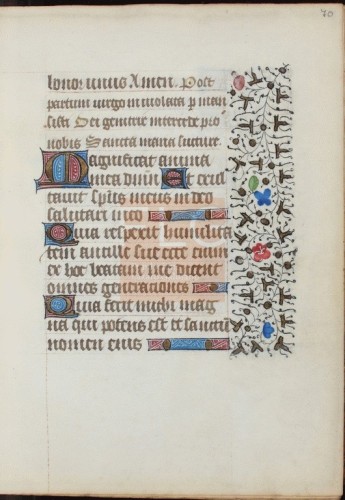 70
honor unus Amen. Post
partum virgo inviolata perman
sisti Dei genitrix intercede pro
nobis Sancta maria succure
Magnificat anima
mea dnm Et exul
tavit spus meus in deo
salutari meo
Quia respexit humilita
tem ancille sue ecce enim
ex hoc beatam me dicent
omnes generationes
Quia fecit michi mag
na qui potens est et sanctu
nomen eius